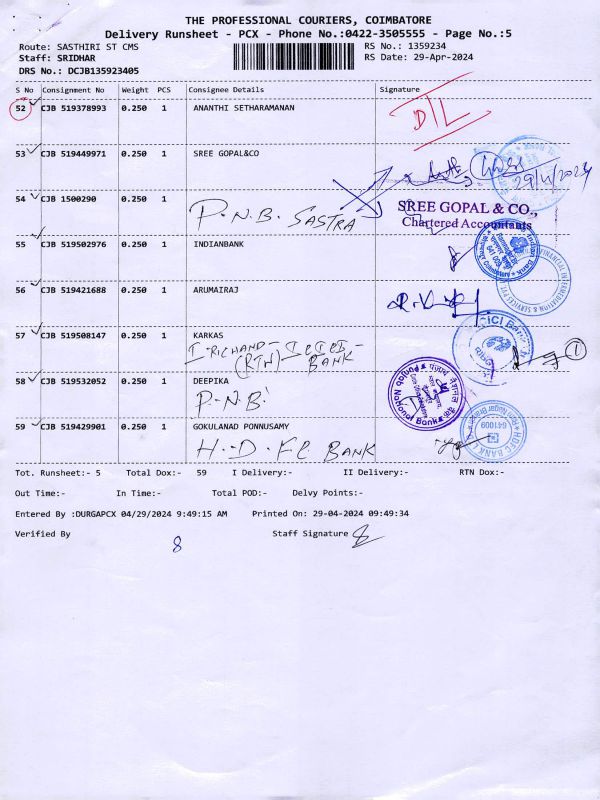 THE PROFESSIONAL COURIERS, COIMBATORE
Delivery Runsheet - PCX - Phone No.:0422-3505555 - Page No.:5
Route: SASTHIRI ST CMS RS No.: 1359234
Staff: SRIDHAR RS Date: 29-Apr-2024
DRS No.: DCJB135923405
S No Consignment No Weight PCS Consignee Details Signature
52 CJB 519378993 0.250 1 ANANTHI SETHARAMANAN DTL
53 CJB 519449971 0.250 1 SREE GOPAL&CO
29/4/2024
54 CJB 1500290 0.250 1 SREE GOPAL & CO.,
P.N.B. SASTRA Chartered Accountants
55 CJB 519502976 0.250 1 INDIANBANK
56 CJB 519421688 0.250 1 ARUMAIRAJ
57 CJB 519508147 0.250 1 KARKAS
(RTN) BANK
58 CJB 519532052 0.250 1 DEEPIKA
P.N.B. Punjab National Bank
59 CJB 519429901 0.250 1 GOKULANAD PONNUSAMY
H.D.F.C BANK 641009
Tot. Runsheet:- 5 Total Dox:- 59 I Delivery:- II Delivery:- RTN Dox:-
Out Time:- In Time:- Total POD:- Delvy Points:-
Entered By :DURGAPCX 04/29/2024 9:49:15 AM Printed On: 29-04-2024 09:49:34
Verified By 8 Staff Signature